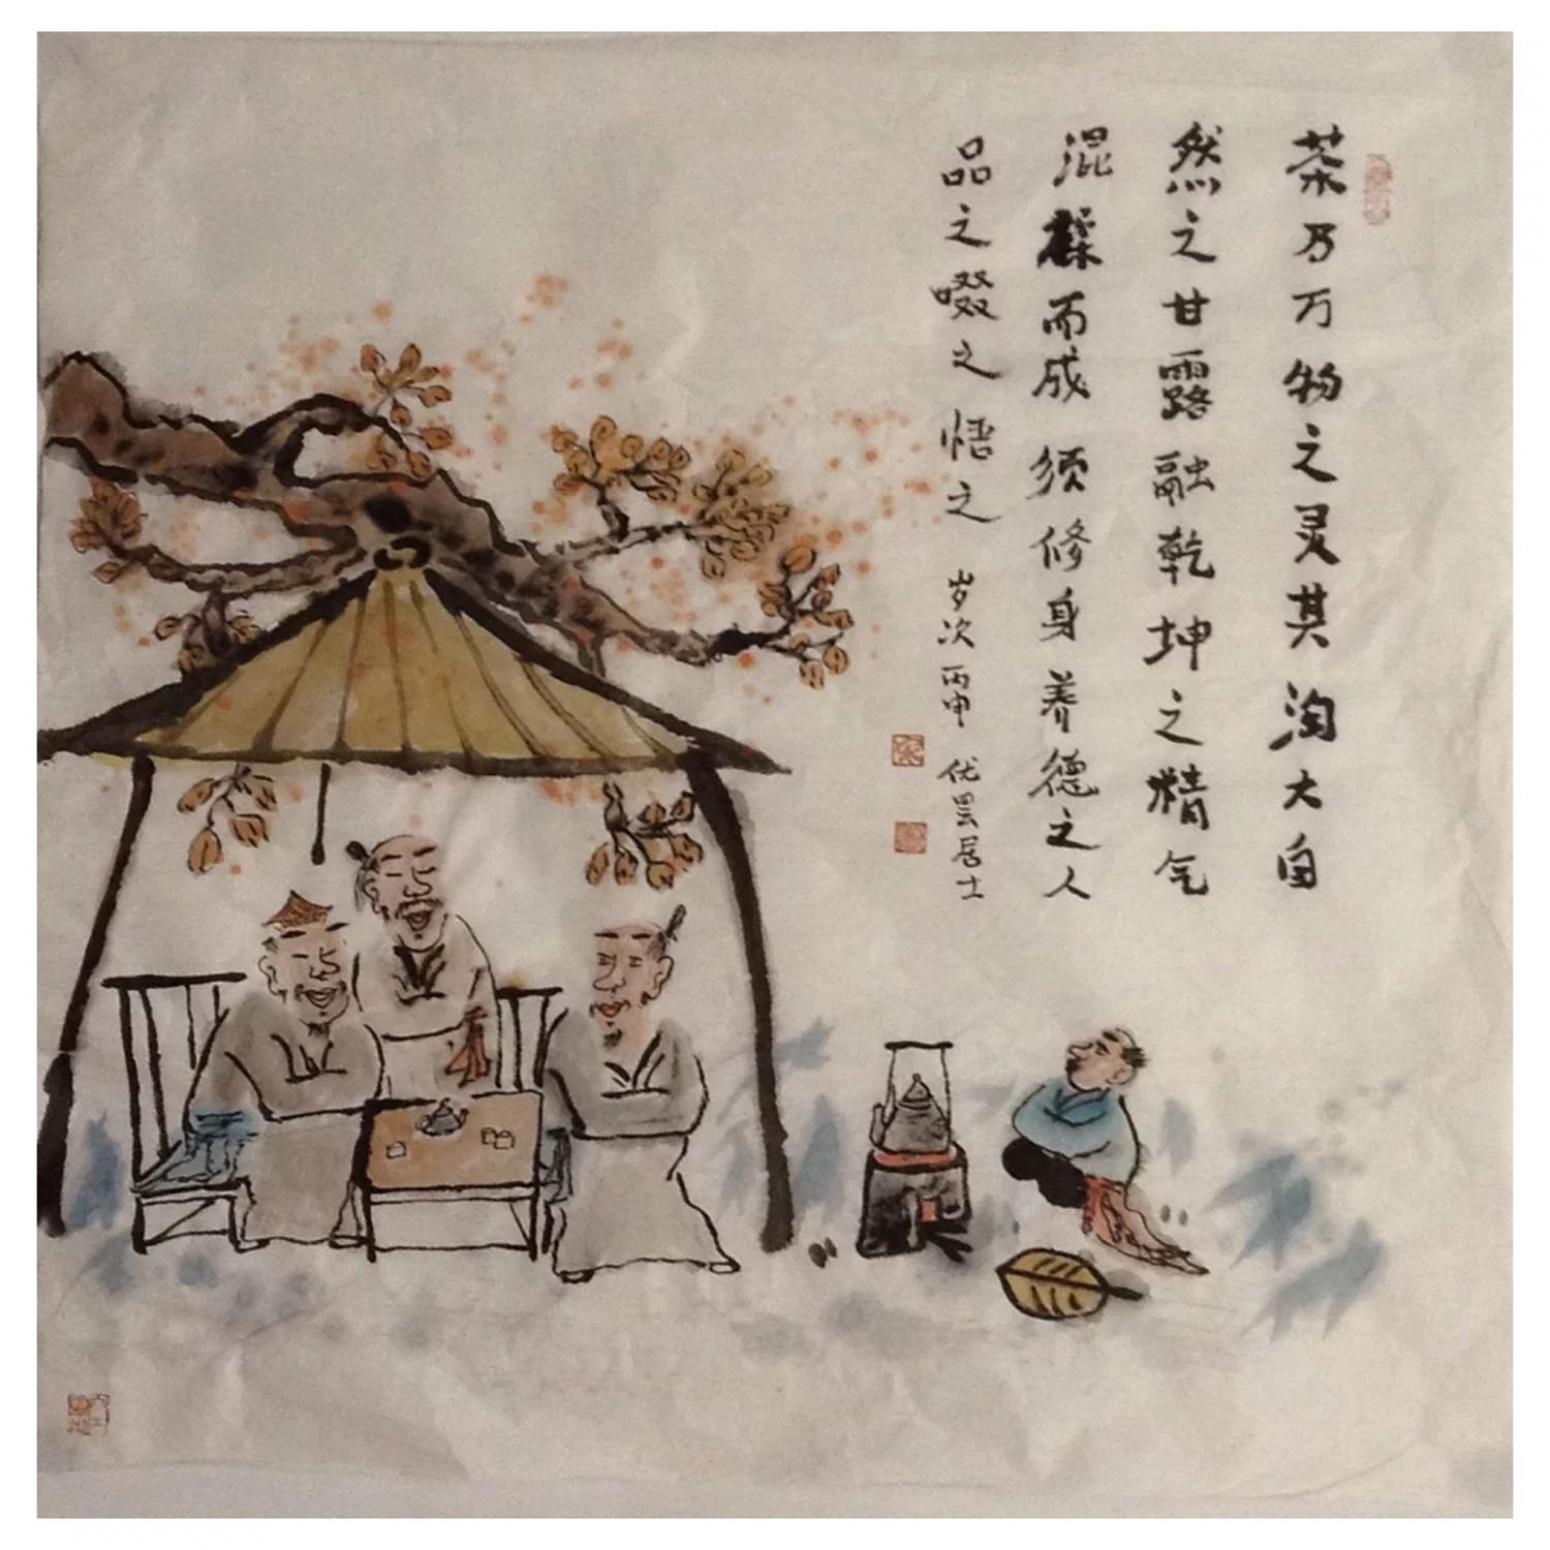 茶乃万物之灵其淘大自
然之甘露融乾坤之精气
混糅而成须修身养德之人
品之啜之悟之 岁次丙申 优昙居士